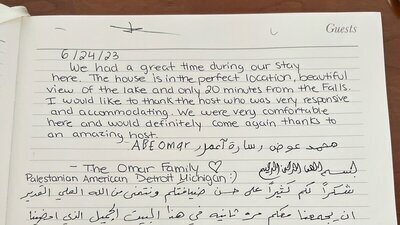 Guests
6/24/23
We had a great time during our stay
here. The house is in the perfect location, beautiful
view of the lake and only 20 minutes from the Falls.
I would like to thank the host who was very responsive
and accommodating. We were very comfortable
here and would definitely come again thanks to
an amazing host.
- ABE Omar محمد عوض سارة أعمار
- The Omar Family ♡
بسم الله الرحمن الرحيم
Palestanian American Detroit Michigan :)
شكراً لكم كثيراً على حسن ضيافتكم ونتمنى من الله العلي القدير
ان يجمعنا معكم مره ثانيه في هذا البيت الجميل الذي امضينا